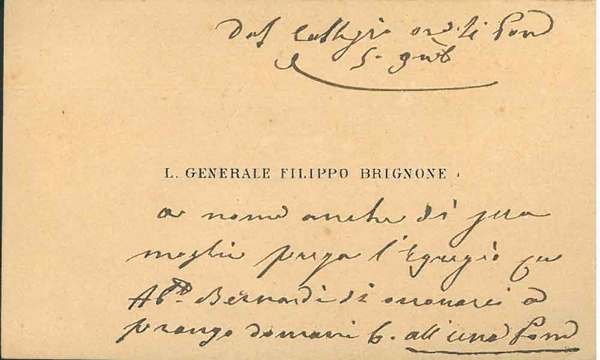 Dal Collegio
5.
L. GENERALE FILIPPO BRIGNONE
a nome anche di sua
moglie prega l'Egregio
Ab.te Bernardi di onorarci a
pranzo domani 6. all'una Pom